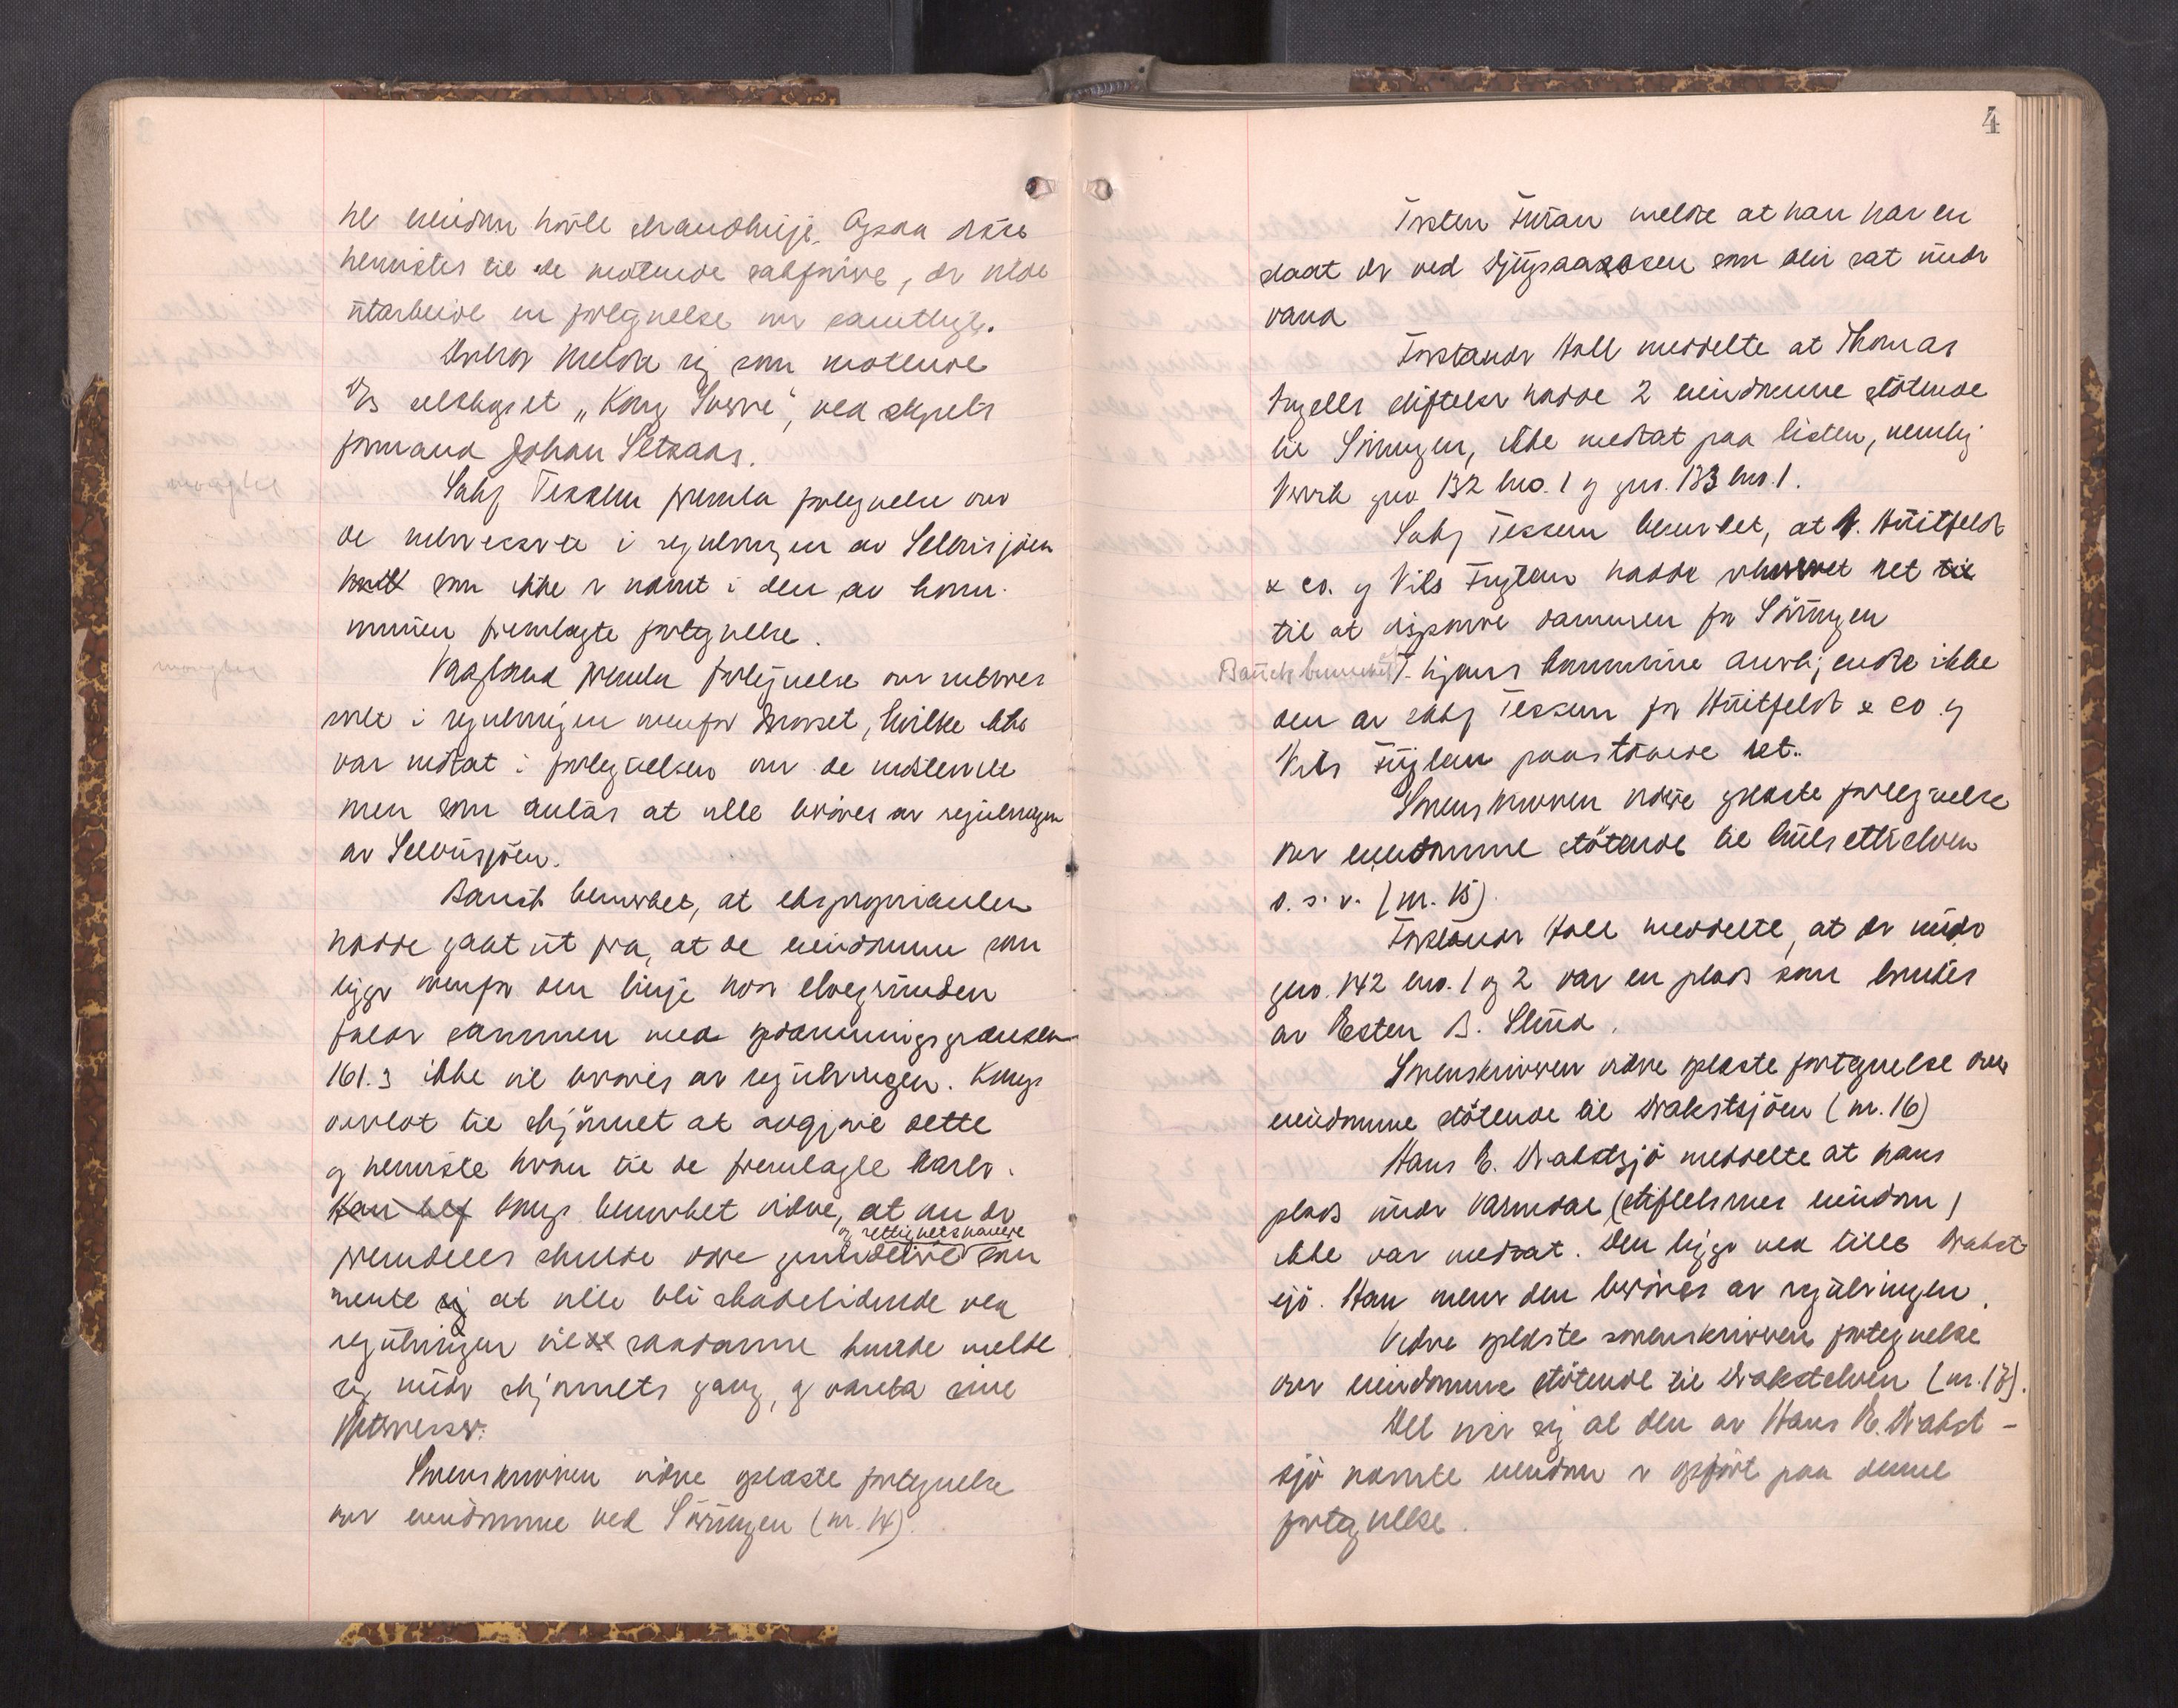 hel eiendom hvile strandlinje. Ogsaa disse
henvistes til de møtende sakførere, der vilde
utarbeide en fortegnelse over samtlige.
Derhos meldte sig som møtende
D/S selskapet "Kong Sverre", ved styrets
formand Johan Setsaas.
Sakf Tessem fremla fortegnelse over
de interesserte i reguleringen av Selbusjøen
som ikke er nævnt i den av kom-
munen fremlagte fortegnelse.
Vagland fremla fortegnelse over interes
serte i reguleringen nenfor Brøset, hvilke ikke
var mottat i fortegnelsen over de møtende
men som antas at ville berøres av reguleringen
av Selbusjøen.
Bauck bemerket, at eksproprianten
hadde gaat ut fra, at de eiendomme som
ligger ovenfor den linje hvor elvegrunden
falder sammen med opdæmningsgrænsen
161.3 ikke vil berøres av reguleringen. Komp.
overlot til skjønnet at avgjøre dette
og henviste hertil til de fremlagte karter.
Han bef komp. bemerket videre, at om der
og rettighetshavere
fremdeles skulde være grundeiere som
mente sig at ville bli skadelidende ved
reguleringen vil saadanne kunde melde
sig under skjønnets gang, og vareta sine
interesser.
Sorenskriveren videre oplæste fortegnelse
over eiendomme ved Sörungen (nr. 14).
4
Esten Furan meldte at han har en
slaat der ved Djupsaasosen som blir sat under
vand
Forstander Hall meddelte at Thomas
Angells stiftelser hadde 2 eiendomme støtende
til Sörungen, ikke medtat paa listen, nemlig
Vervik gno 132 bno. 1 og gno. 133 bno. 1.
Sakf Tessem bemerket, at H. Huitfeldt
& co. og Nils Fuglem hadde erhvervet ret til
til at disponere dammen for Sörungen
Bauck bemerket T-hjems kommune anerkjendte ikke
den av sakf Tessem for Huitfeldt & co og
Nils Fuglem paastaaede ret.
Sorenskriveren videre oplæste fortegnelse
over eiendomme støtende til Hulsetelven
o. s. v. (nr. 15).
Forstander Hall meddelte, at der under
gno. 142 bno. 1 og 2 var en plads som brukes
av Esten B. Slind.
Sorenskriveren videre oplæste fortegnelse over
eiendomme støtende til Drakstsjøen (nr. 16)
Hans E. Drakstsjø meddelte at hans
plads under Varmdal (stiftelsernes eiendom)
ikke var medtat. Den ligger ved lille Drakst-
sjö. Han mener den berøres av reguleringen.
Videre oplæste sorenskriveren fortegnelse
over eiendomme støtende til Drakstelven (nr. 17).
Det viser sig at den av Hans E. Drakst-
sjö nævnte eiendom er opført paa denne
fortegnelse.